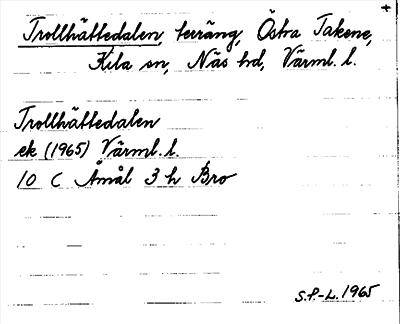 +
Trollhättedalen, terräng, Östra Takene,
Kila sn, Näs hd, Värml. l.
Trollhättedalen
ek (1965) Värml. l.
10 C Åmål 3 h Bro
S.P.-L. 1965